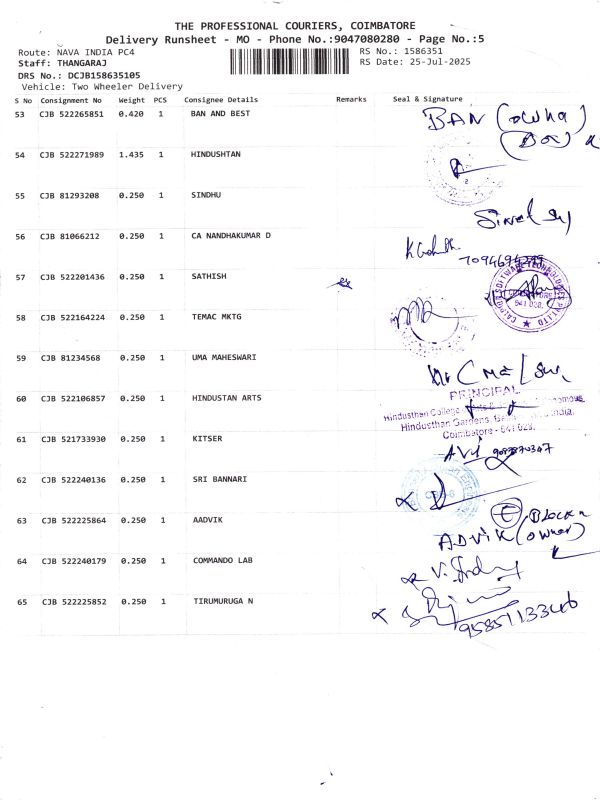 THE PROFESSIONAL COURIERS, COIMBATORE
Delivery Runsheet - MO - Phone No.:9047080280 - Page No.:5
Route: NAVA INDIA PC4 RS No.: 1586351
Staff: THANGARAJ RS Date: 25-Jul-2025
DRS No.: DCJB158635105
Vehicle: Two Wheeler Delivery
S No Consignment No Weight PCS Consignee Details Remarks Seal & Signature
53 CJB 522265851 0.420 1 BAN AND BEST BAN
54 CJB 522271989 1.435 1 HINDUSHTAN
55 CJB 81293208 0.250 1 SINDHU
56 CJB 81066212 0.250 1 CA NANDHAKUMAR D
57 CJB 522201436 0.250 1 SATHISH
58 CJB 522164224 0.250 1 TEMAC MKTG
641 028.
59 CJB 81234568 0.250 1 UMA MAHESWARI
PRINCIPAL
60 CJB 522106857 0.250 1 HINDUSTAN ARTS
Hindusthan College
Hindusthan Gardens, India,
Coimbatore - 641 028.
61 CJB 521733930 0.250 1 KITSER
62 CJB 522240136 0.250 1 SRI BANNARI
63 CJB 522225864 0.250 1 AADVIK
E Block
ADVIK (owner)
64 CJB 522240179 0.250 1 COMMANDO LAB
65 CJB 522225852 0.250 1 TIRUMURUGA N